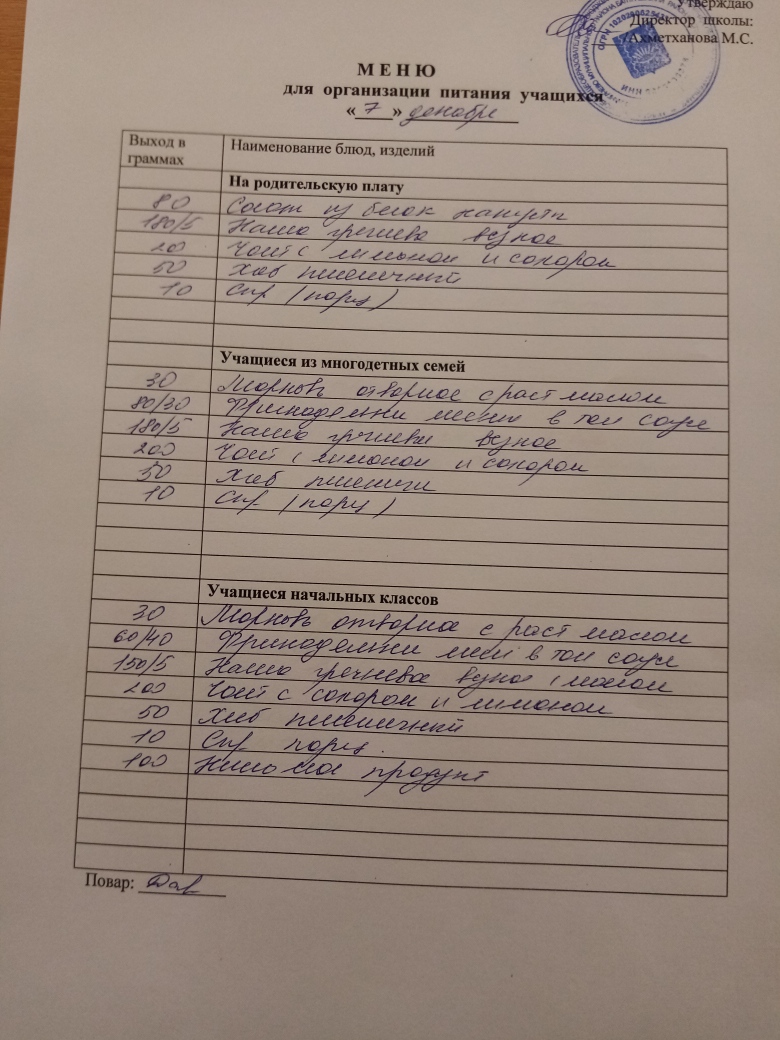 Утверждаю
Директор школы:
Ахметханова М.С.
МЕНЮ
для организации питания учащихся
«7» декабря
Выход в граммах Наименование блюд, изделий
На родительскую плату
80 Салат из белок капусты
180/5 Каша гречнева вязкое
200 Чай с лимоном и сахаром
50 Хлеб пшеничный
10 Сыр (порц)
Учащиеся из многодетных семей
30 Морковь отварное с раст маслом
80/30 Фрикадельки мясны в том соусе
180/5 Каша гречнева вязкое
200 Чай с лимоном и сахаром
50 Хлеб пшеничн
10 Сыр (порц)
Учащиеся начальных классов
30 Морковь отварное с раст маслом
60/40 Фрикадельки мясн в том соусе
150/5 Каша гречневая вязкое с маслом
200 Чай с сахаром и лимоном
50 Хлеб пшеничный
10 Сыр порц.
100 Кисломол продукт
Повар: